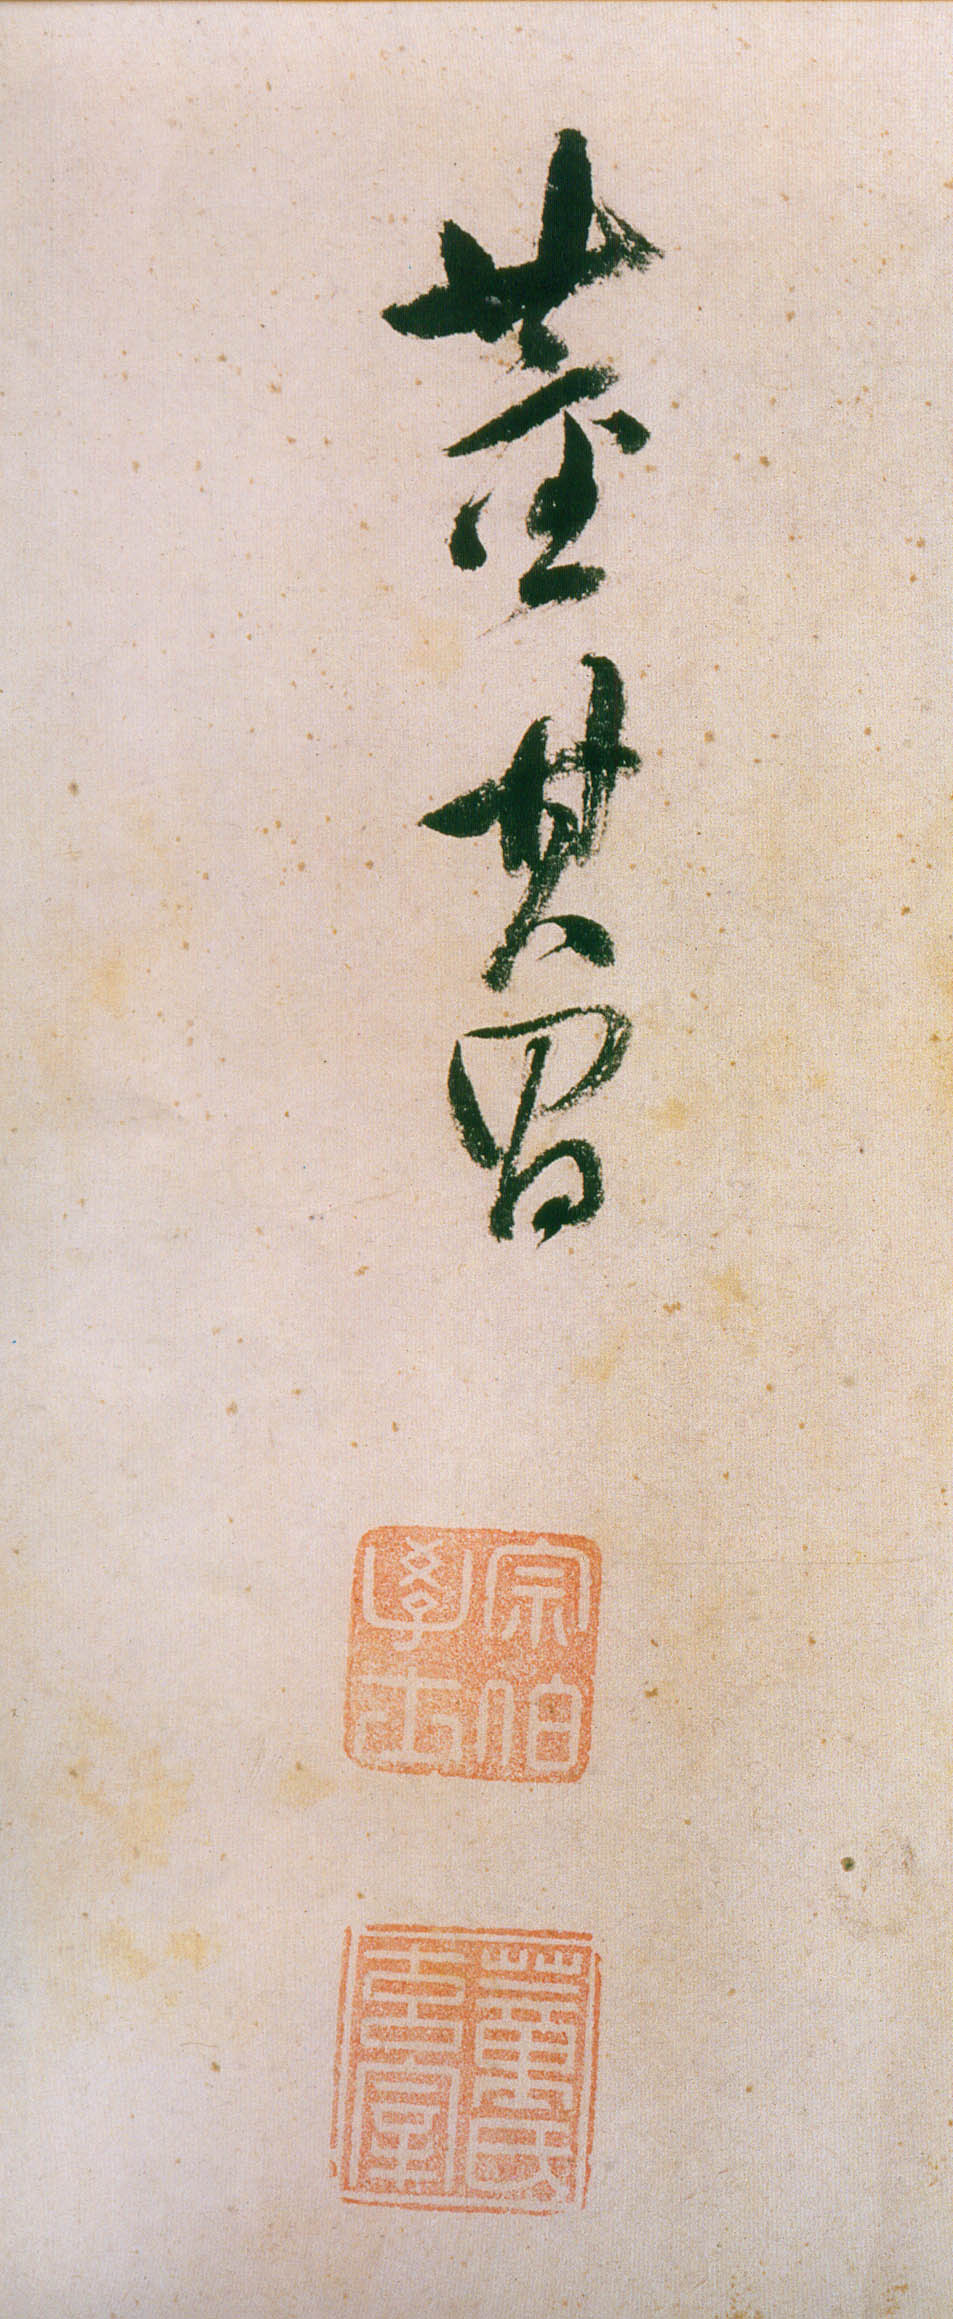 董其昌
宗伯
學士
董氏
玄宰